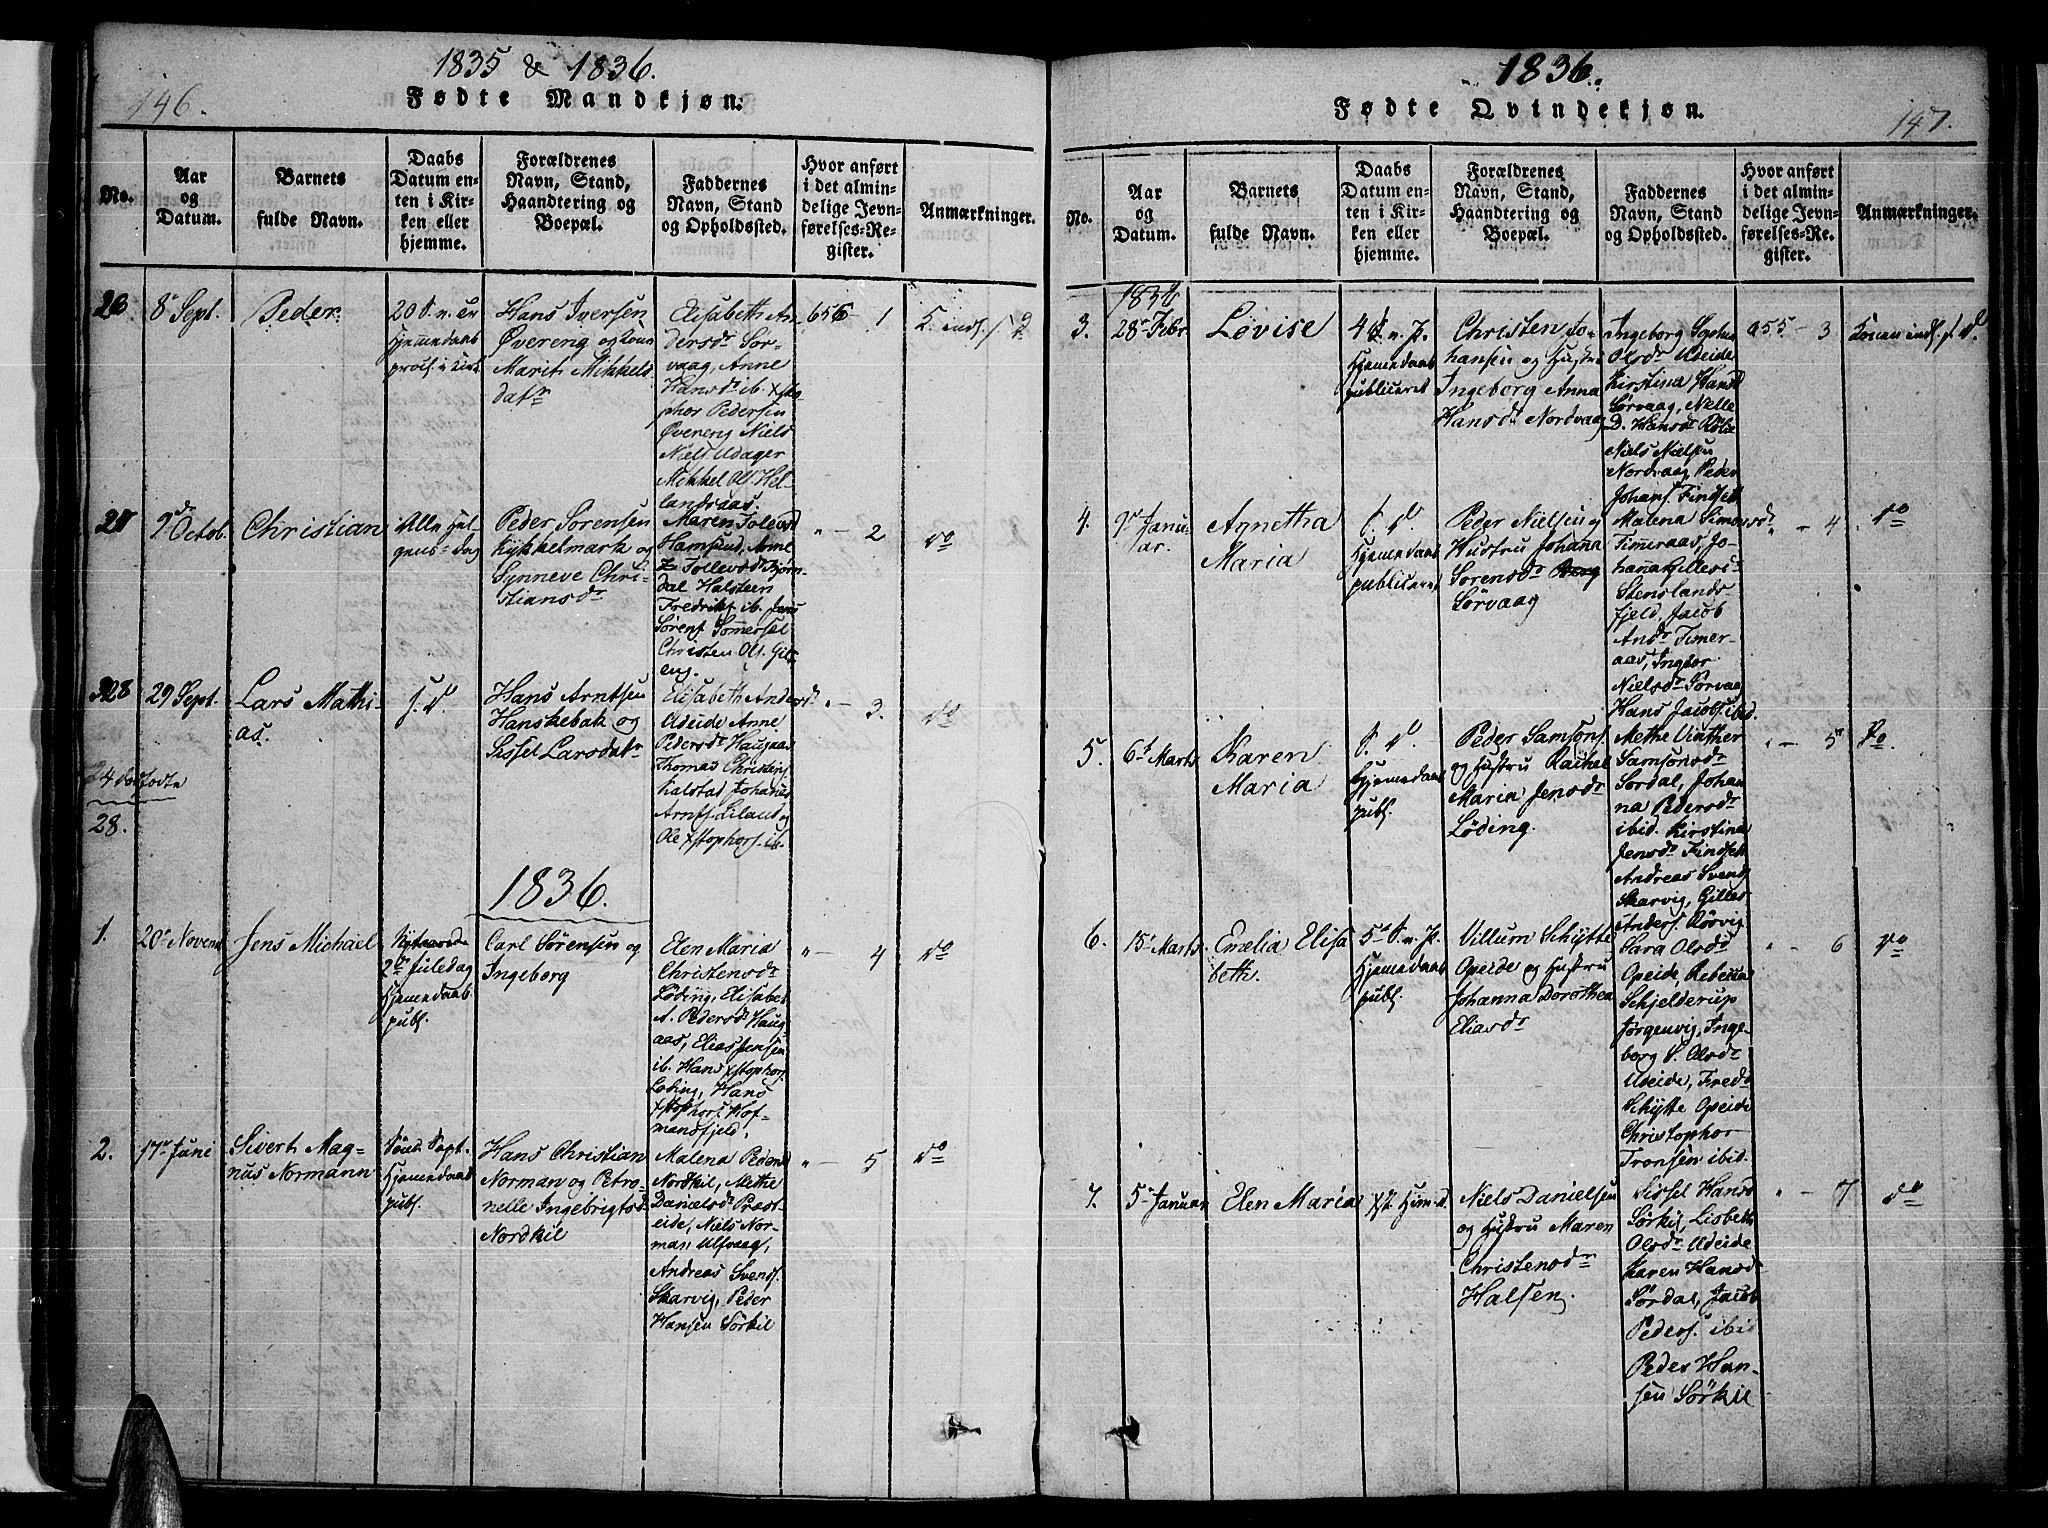 1835 & 1836.
146.
Fødte Mandkjøn.
No.
Aar
og
Datum.
Barnets
fulde Navn.
Daabs
Datum en-
ten i Kir-
ken eller
hjemme.
Forældrenes
Navn, Stand,
Haandtering og
Boepæl.
Faddernes
Navn, Stand
og Opholdssted.
Hvor anført
i det almin-
delige Jevn-
førelses-Re-
gister.
Anmærkninger.
8 Sept.
Peder
Hans Iversen
Øvereng og Kone
Marit Mikkels
datr
Elisabeth An-
dersdr Sør-
vaag, Anne
Hansdr ib. Xsto-
phor Pedersen
Øvereng Niels
Niels. Udager
Mikkel Ols. Hel-
landsaas.
656
1
2
Octob.
Christian
Alle Hel-
gens-dag
Peder Sørensen
Kykkelmark og
Synneve Chri-
stiansdr
Maren Tollevsd
Hamsund, Anne
Tollevsdr Bjørn-
dal Halsteen
Fredriks. ib. Jens
Sørens. Sommersel
Christen Ols. Gil-
eng.
" — 2
do
28
29 Sept.
Lars Mathi-
as.
Hans Arntsen
Hanskebak og
Sissel Larsdatr
Elisabeth Andersdr
Udeide Anne
Pedersdr Haugaas
Thomas Christens.
Kalstad Johannes
Arnts. Liland og
Ole Xstophors. ib.
" — 3.
do
4 dødfødte
28.
1836.
1.
20de Novemb
Jens Michael
Nytaarsd
2den Juledag
Hjemmedaab
publ.
Carl Sørensen og
Ingeborg
Elen Maria
Christensdr
Løding, Elisabet
A. Pedersdr Haug-
aas, Elias Jensen
ib. Hans Xstophors.
Løding, Hans
Xstophors. Hof-
mansfjeld.
" — 4
do
2.
17de Juni
Sivert Mag-
nus Normann
Hjemmedaab
publ.
Hans Christian
Norman og Petro-
nelle Ingebrigtsd
Nordkil
Malena Pedersd
Nordkil, Methe
Danielsdr Præst-
eide, Niels Nor-
man Ulfvaag,
Andreas Svends.
Skarvig, Peder
Hansen Sørkil
" — 5
do
1836.
147.
Fødte Qvindekjøn.
No.
Aar
og
Datum.
Barnets
fulde Navn.
Daabs
Datum en-
ten i Kir-
ken eller
hjemme.
Forældrenes
Navn, Stand,
Haandtering og
Boepæl.
Faddernes
Navn, Stand
og Opholdssted.
Hvor anført
i det almin-
delige Jevn-
førelses-Re-
gister.
Anmærkninger.
1836
3.
28de Febr
Lovise
Hjemmedaab
publiceret
Christen Jo-
hansen og Hustru
Ingeborg Anna
Hansdr Nordvaag
Ingeborg Sophia
Olsdr Udeide
Kirstina Hansd
Sørvaag, Nille
D. Hansdr
Niels Nielsen
Nordvaag, Peder
Johans. Findset
655 — 3
4.
9de Janu-
ar.
Agnetha
Maria
Hjemmedaab
publiceret
Peder Nielsen og
Hustru Johana
Sørensdr
Sørvaag
Malena Simonsdr
Timeraas, Jo-
hana Gillesdr
Stenslands-
fjeld, Jacob
Andr Timer-
aas, Ingbor
Nielsdr Sørvaag
Hans Jacobs. ibid.
" — 4.
do
5.
6te Marts
Karen
Maria
Hjemmedaab
publ.
Peder Samsons.
og Hustru Rachel
Maria Jensdr
Løding.
Methe Vinther
Samsonsdr
Sørdal, Johan-
na Pedersdr
ibid. Kirstina
Jensdr Findset
Andreas Svends
Skarvig, Gilles
Anders. Rørvig
" — 5
do
6.
15de Marts
Emelia Elisa
beth.
Hjemmedaab
publ.
Villum Schytte
Opeide og Hustru
Johanna Dorothea
Eliasdr
Sara Olsdr
Opeide, Rebecca
Schjelderup
Jørgenvig, Inge-
borg S. Olsdr
Udeide, Fredr
Schytte Opeide
Christophor
Tronsen ibid.
" — 6
do
7.
5te Januar
Elen Maria
Niels Danielsen
og Hustru Maren
Christensdr
Halsen.
Sissel Hansd
Sørkil, Lisbeth
Olsdr Udeide
Karen Hansd
Sørdal, Jacob
Peders. ibid
Peder Han-
sen Sørkil
" — 7
do